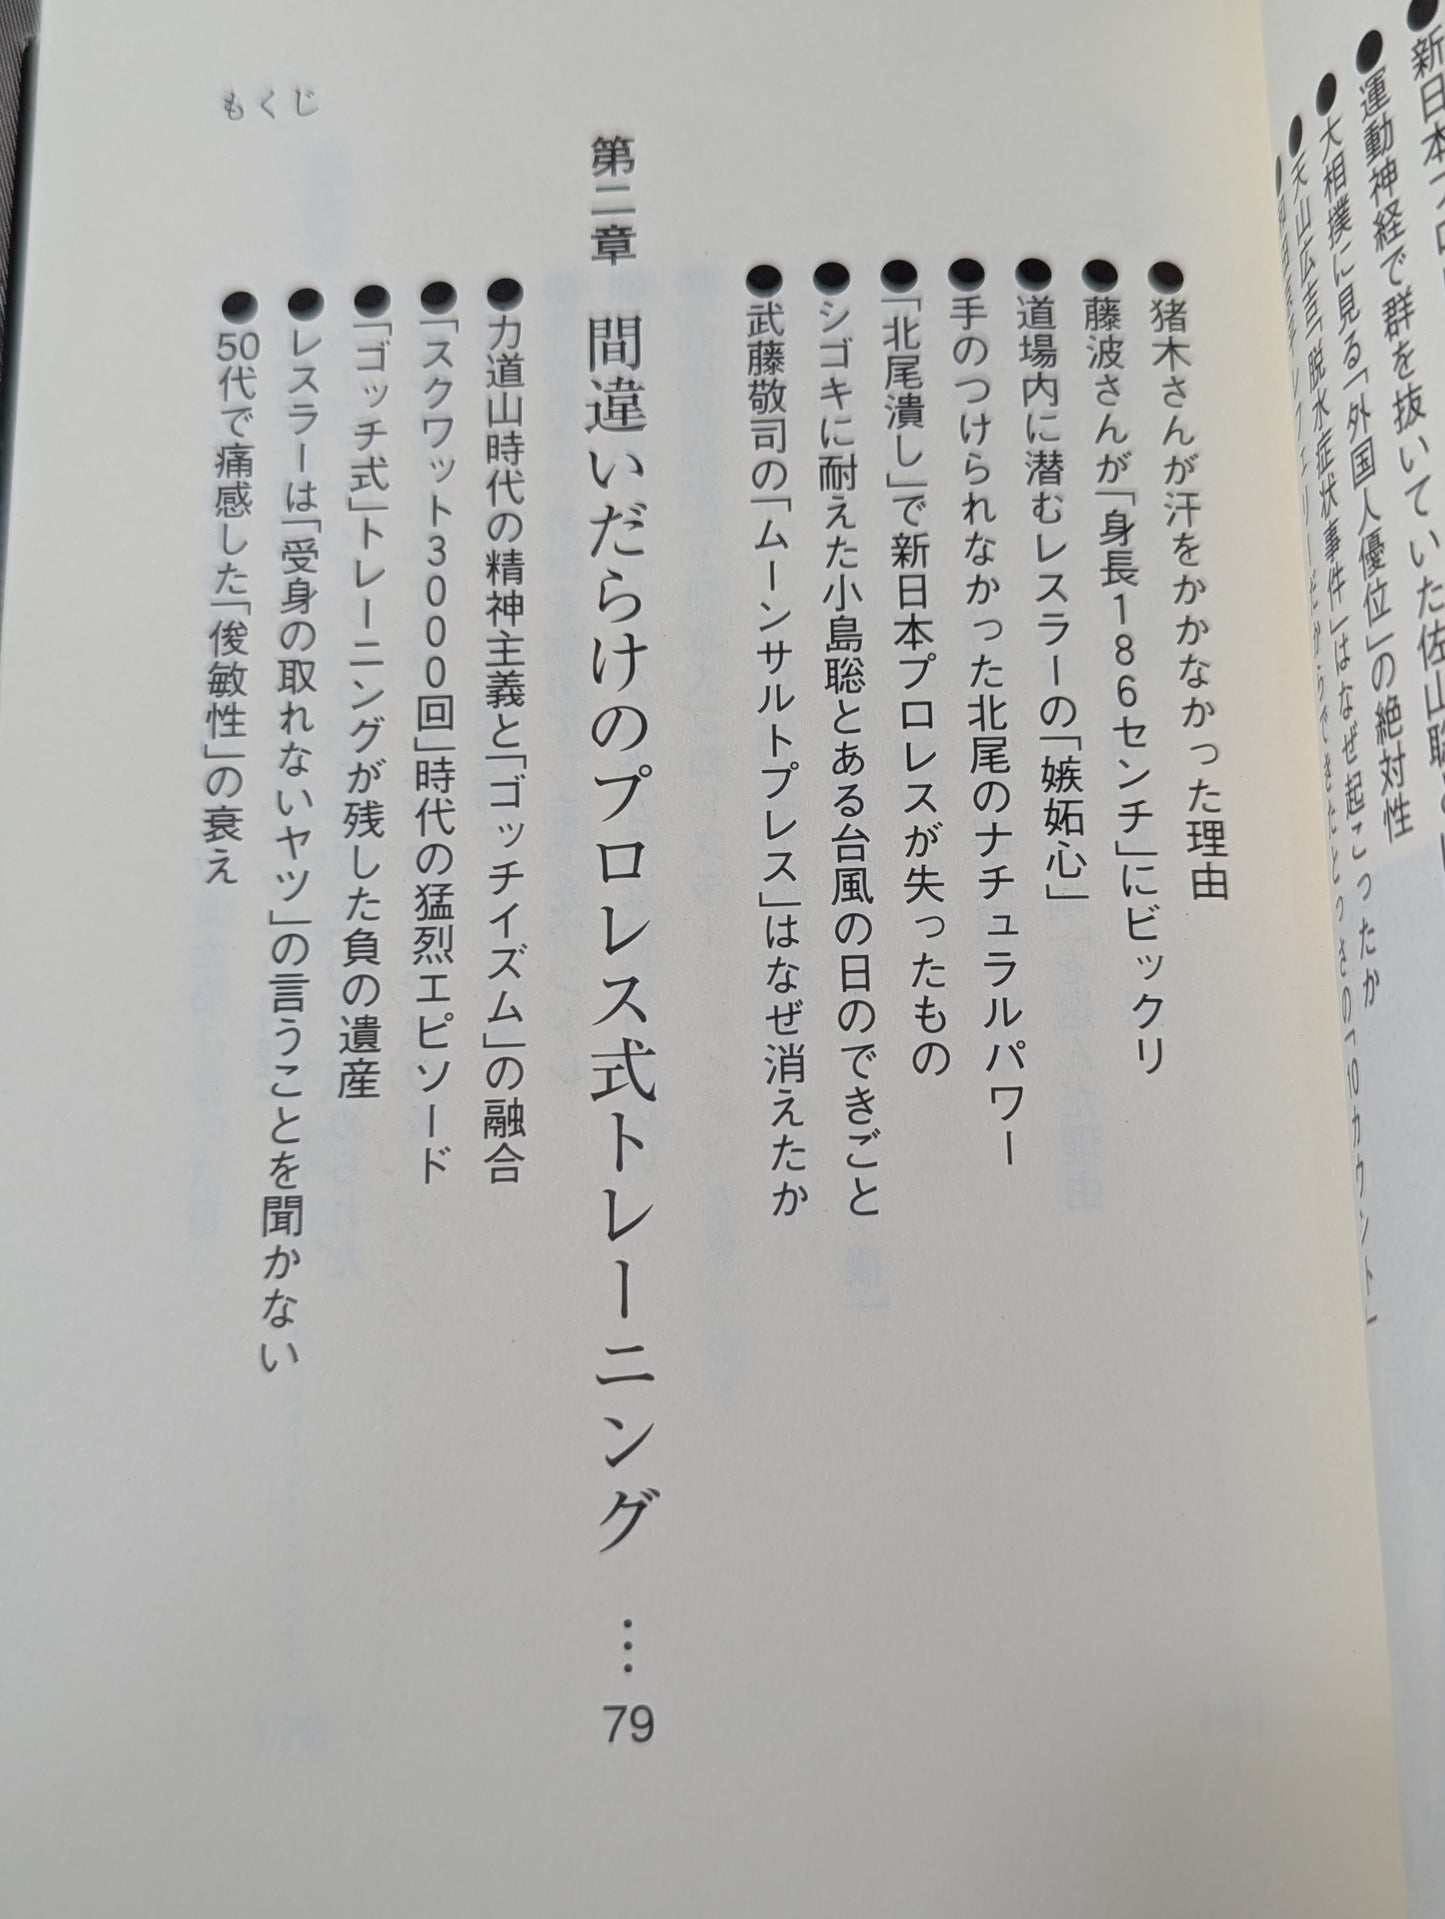 新日本プロレス
運動神経で群を抜いていた佐山聡
大相撲に見る「外国人優位」の絶対性
天山広吉「脱水症状事件」はなぜ起こったか
だからできたとっさの「10カウント」
●猪木さんが汗をかかなかった理由
●藤波さんが「身長186センチ」にビックリ
●道場内に潜むレスラーの「嫉妬心」
●手のつけられなかった北尾のナチュラルパワー
●「北尾潰し」で新日本プロレスが失ったもの
●シゴキに耐えた小島聡とある台風の日のできごと
●武藤敬司の「ムーンサルトプレス」はなぜ消えたか
第二章 間違いだらけのプロレス式トレーニング … 79
●力道山時代の精神主義と「ゴッチイズム」の融合
●「スクワット3000回」時代の猛烈エピソード
●「ゴッチ式」トレーニングが残した負の遺産
●レスラーは「受身の取れないヤツ」の言うことを聞かない
●50代で痛感した「俊敏性」の衰え
もくじ